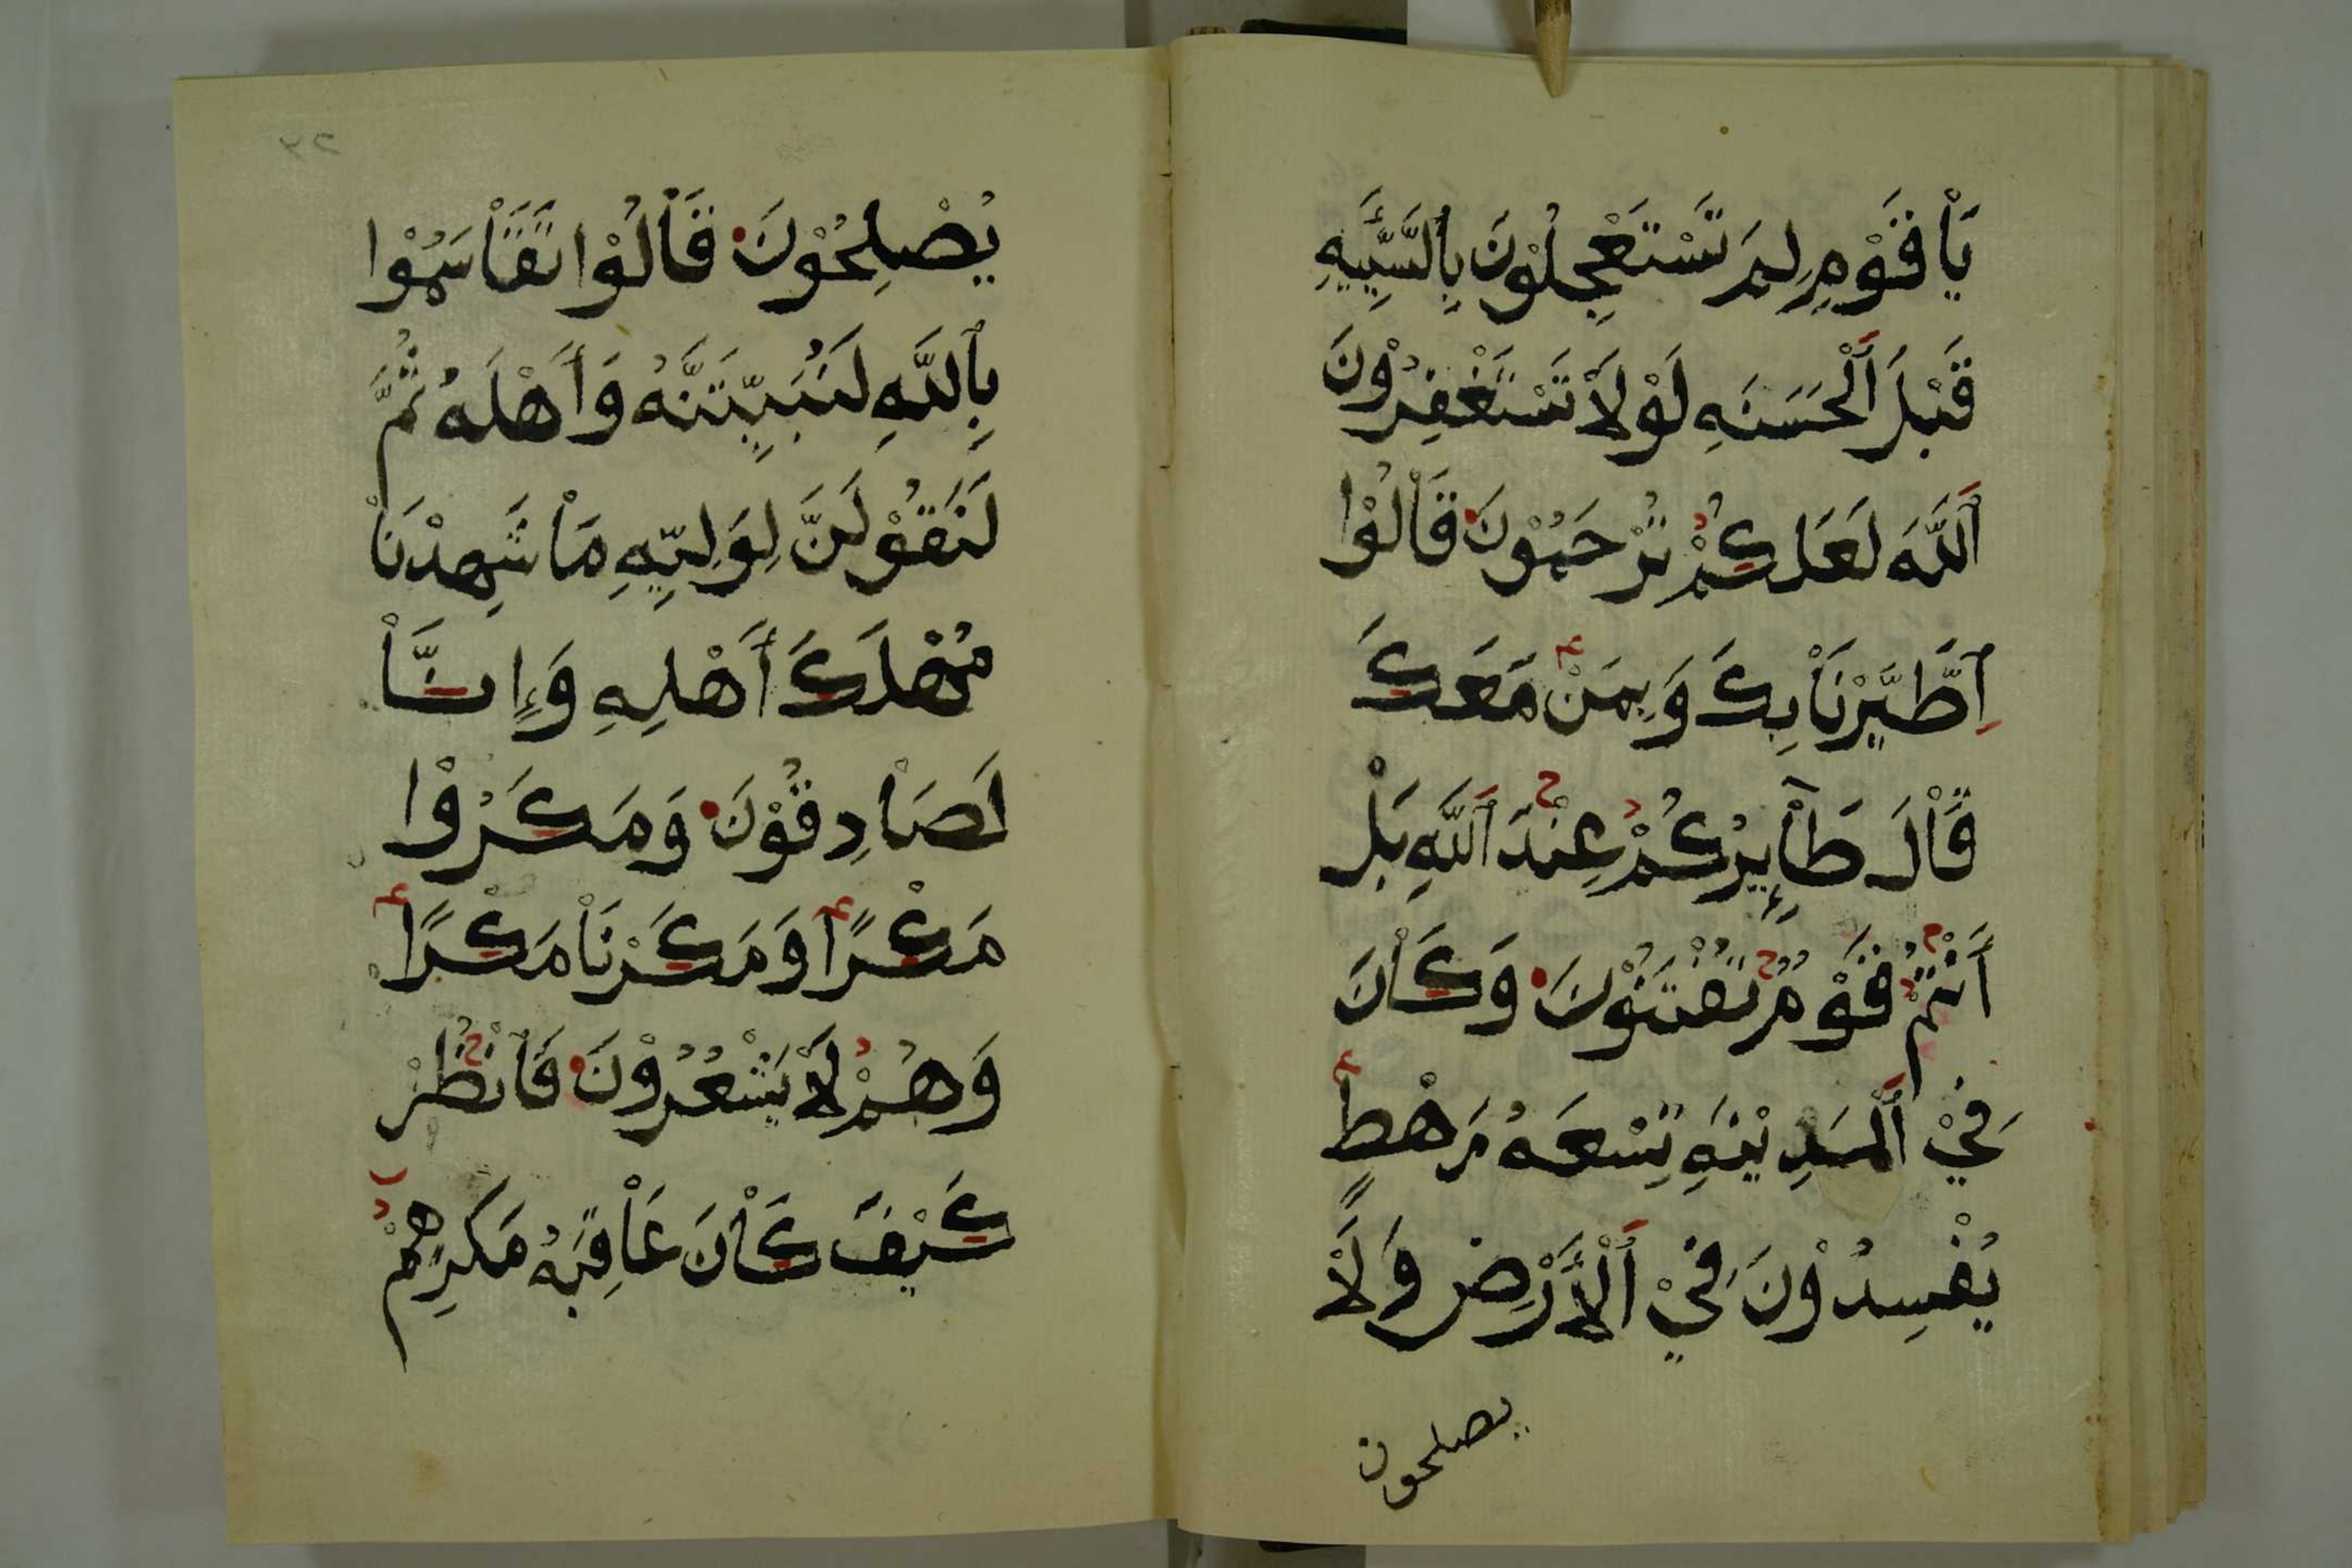 يَاْ قَوْمِ لِمَ تَسْتَعْجِلُوْنَ بِاٌلسَّيِّئَةِ
قَبْلَ اَ۬لْحَسَنَهِ لَوْلَاْ تَسْتَغْفِرُوْنَ
اَللَّهَ لَعَلَكُمْ تُرْحَمُوْنَ قَاْلُوْا
اِطَّيَّرْنَاْ بِكَ وَبِمَنْ مَعَكَ
قَاْلَ طَآئِرُكُمْ عِنْدَ اَللَّهِ بَلْ
أَنْتُمْ قَوْمٌ تُفْتَنُوْنَ وَكَاْنَ
فِيْ اَلْمَدِيْنَهِ تِسْعَهُ رَهْطٍ
يُفْسِدُوْنَ فِيْ اَلْأَرْضِ وَلَاْ
يصلحون
٣٢
يُصْلِحُوْنَ قَاْلُوْا تَقَاْسَمُوْا
بِاللَّهِ لَنُبَيِّتَنَّهُ وَأَهْلَهُ ثُمَّ
لَنَقُوْلَنَّ لِوَلِيِّهِ مَاْ شَهِدْنَاْ
مُهْلَكَ أَهْلِهِ وَإِنَّاْ
لَصَاْدِقُوْنَ وَمَكَرُوْا
مَكْرًا وَمَكَرْنَاْ مَكْرًا
وَهُمْ لَاْ يَشْعُرُوْنَ فَانْظُرْ
كَيْفَ كَاْنَ عَاْقِبَهُ مَكرِهِمْ